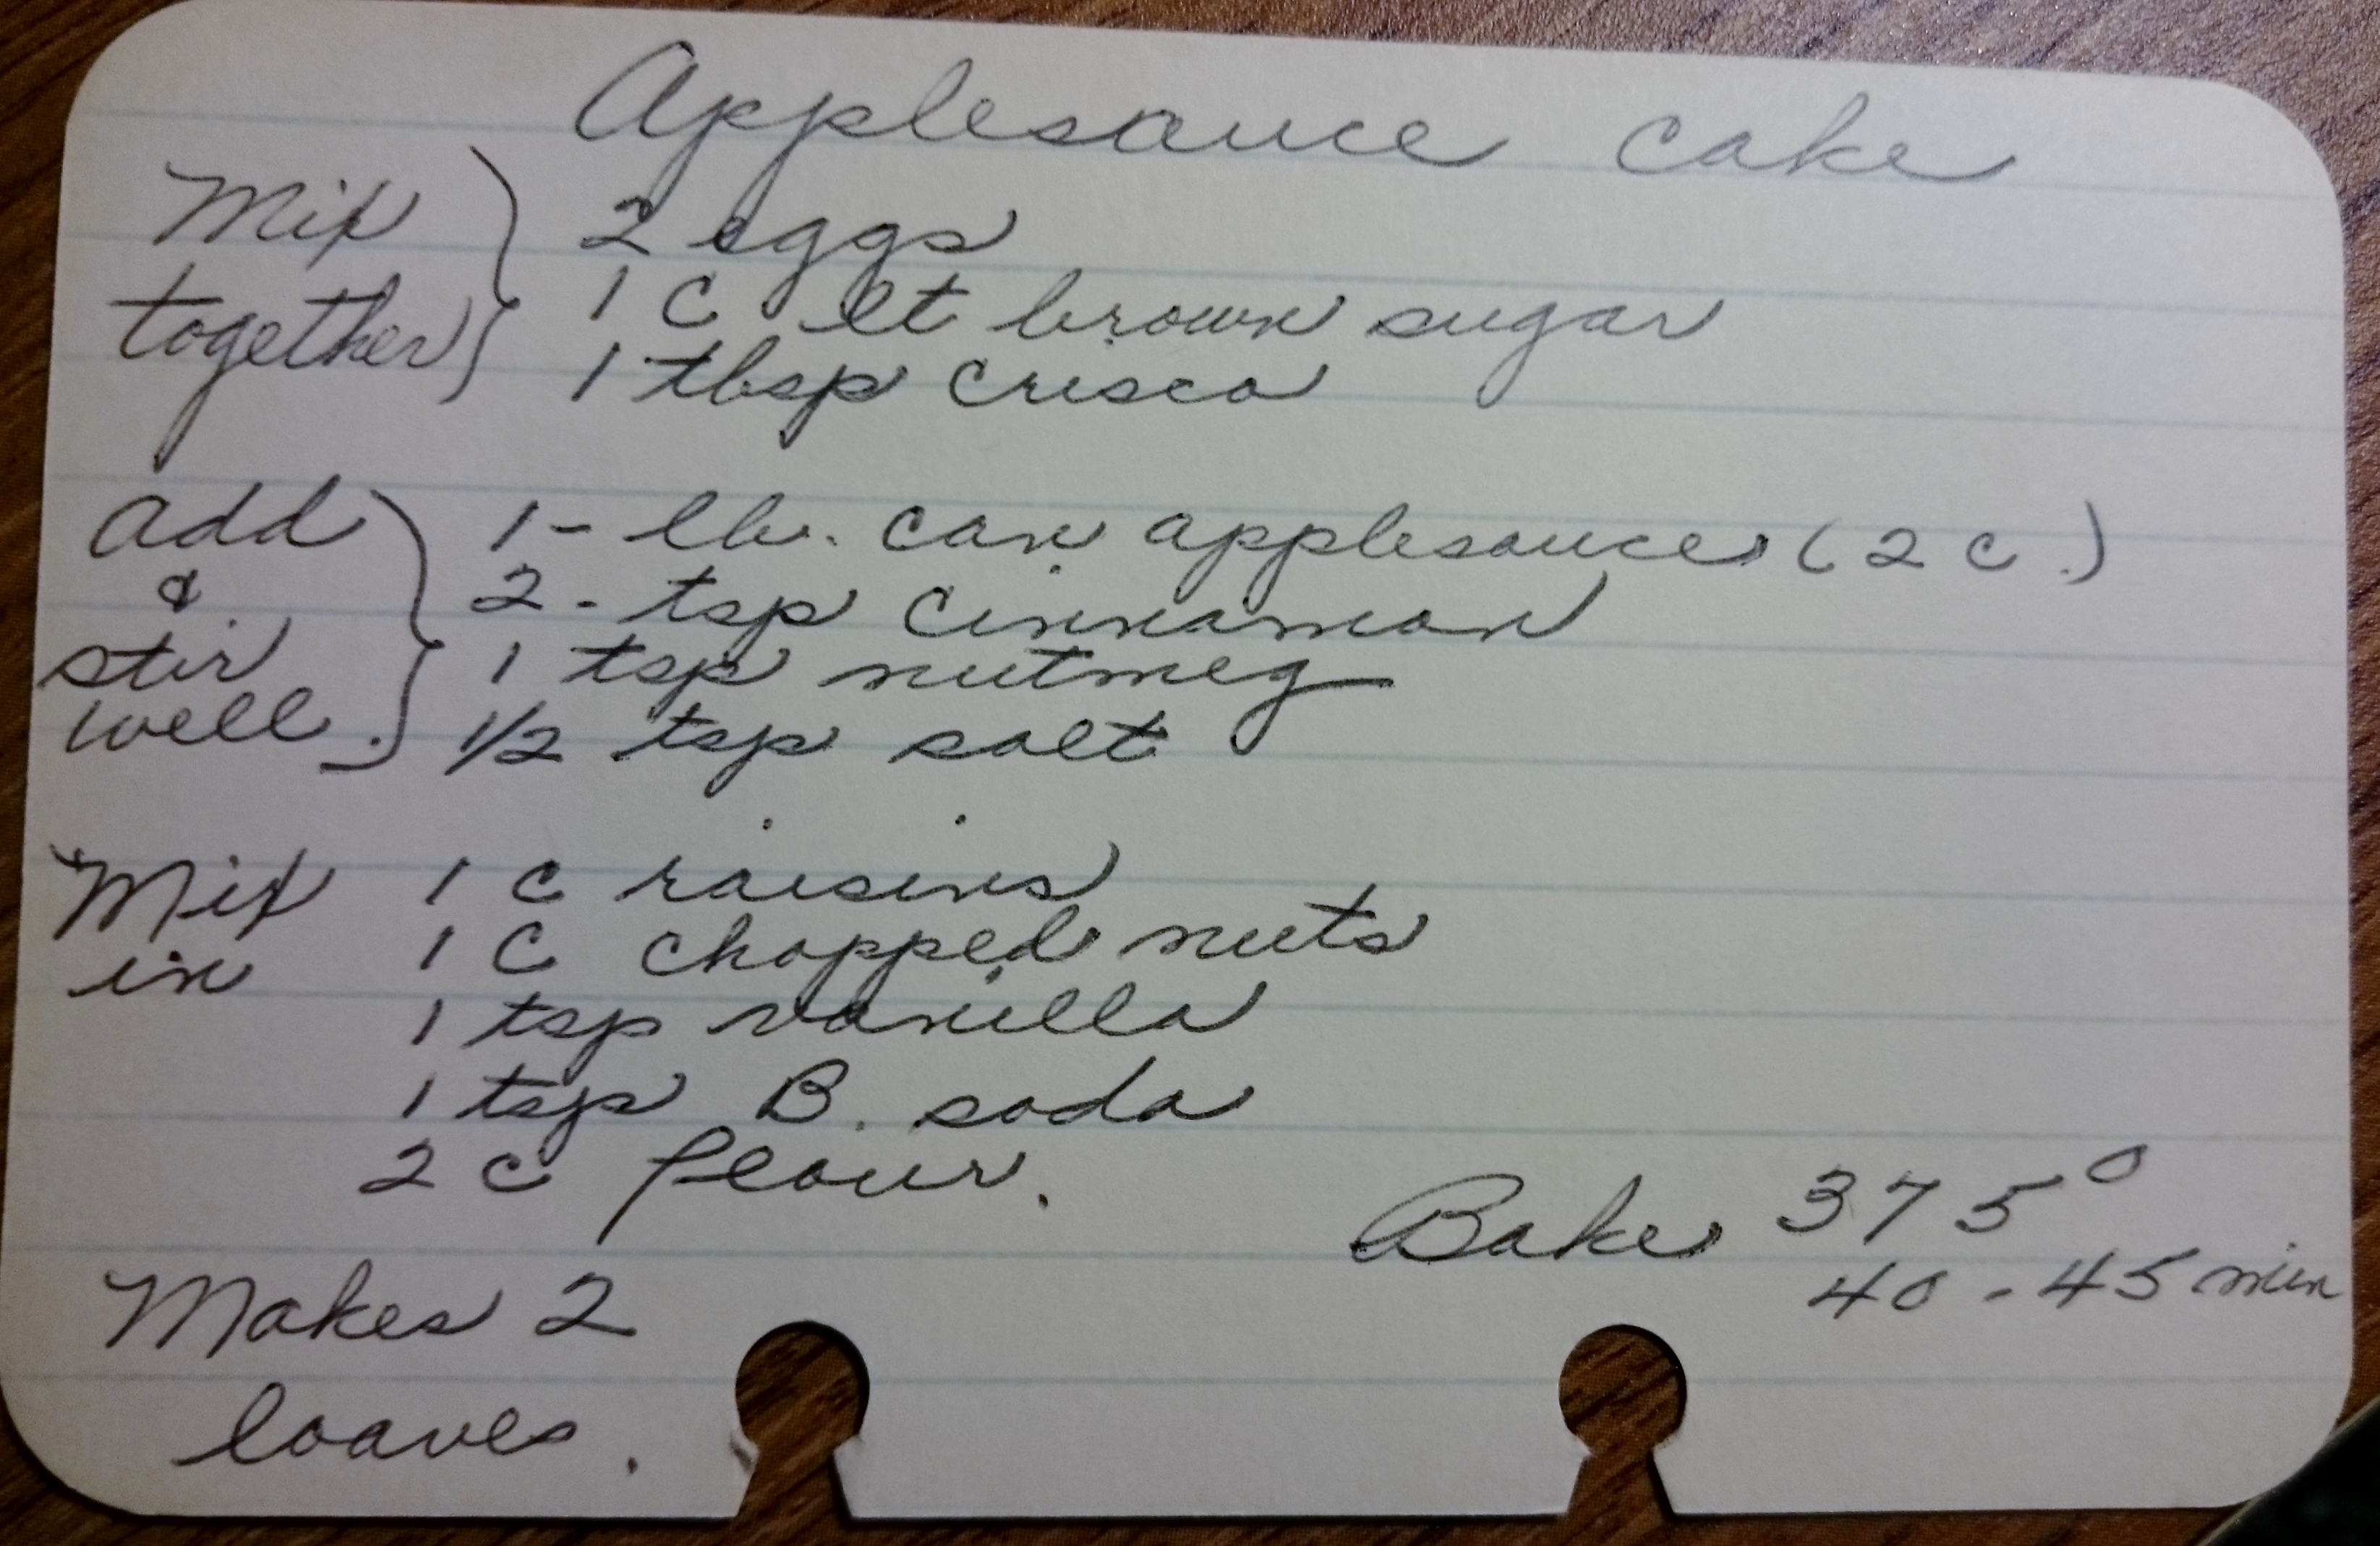 Applesauce cake
Mix together } 2 eggs
1 C lt brown sugar
1 tbsp Crisco
Add & stir well. } 1 - lb. can applesauce (2 c.)
2 - tsp Cinnamon
1 tsp nutmeg
1/2 tsp salt
Mix in 1 c raisins
1 C chopped nuts
1 tsp vanilla
1 tsp B. soda
2 c flour.
Bake 375°
40 - 45 min
Makes 2
loaves.